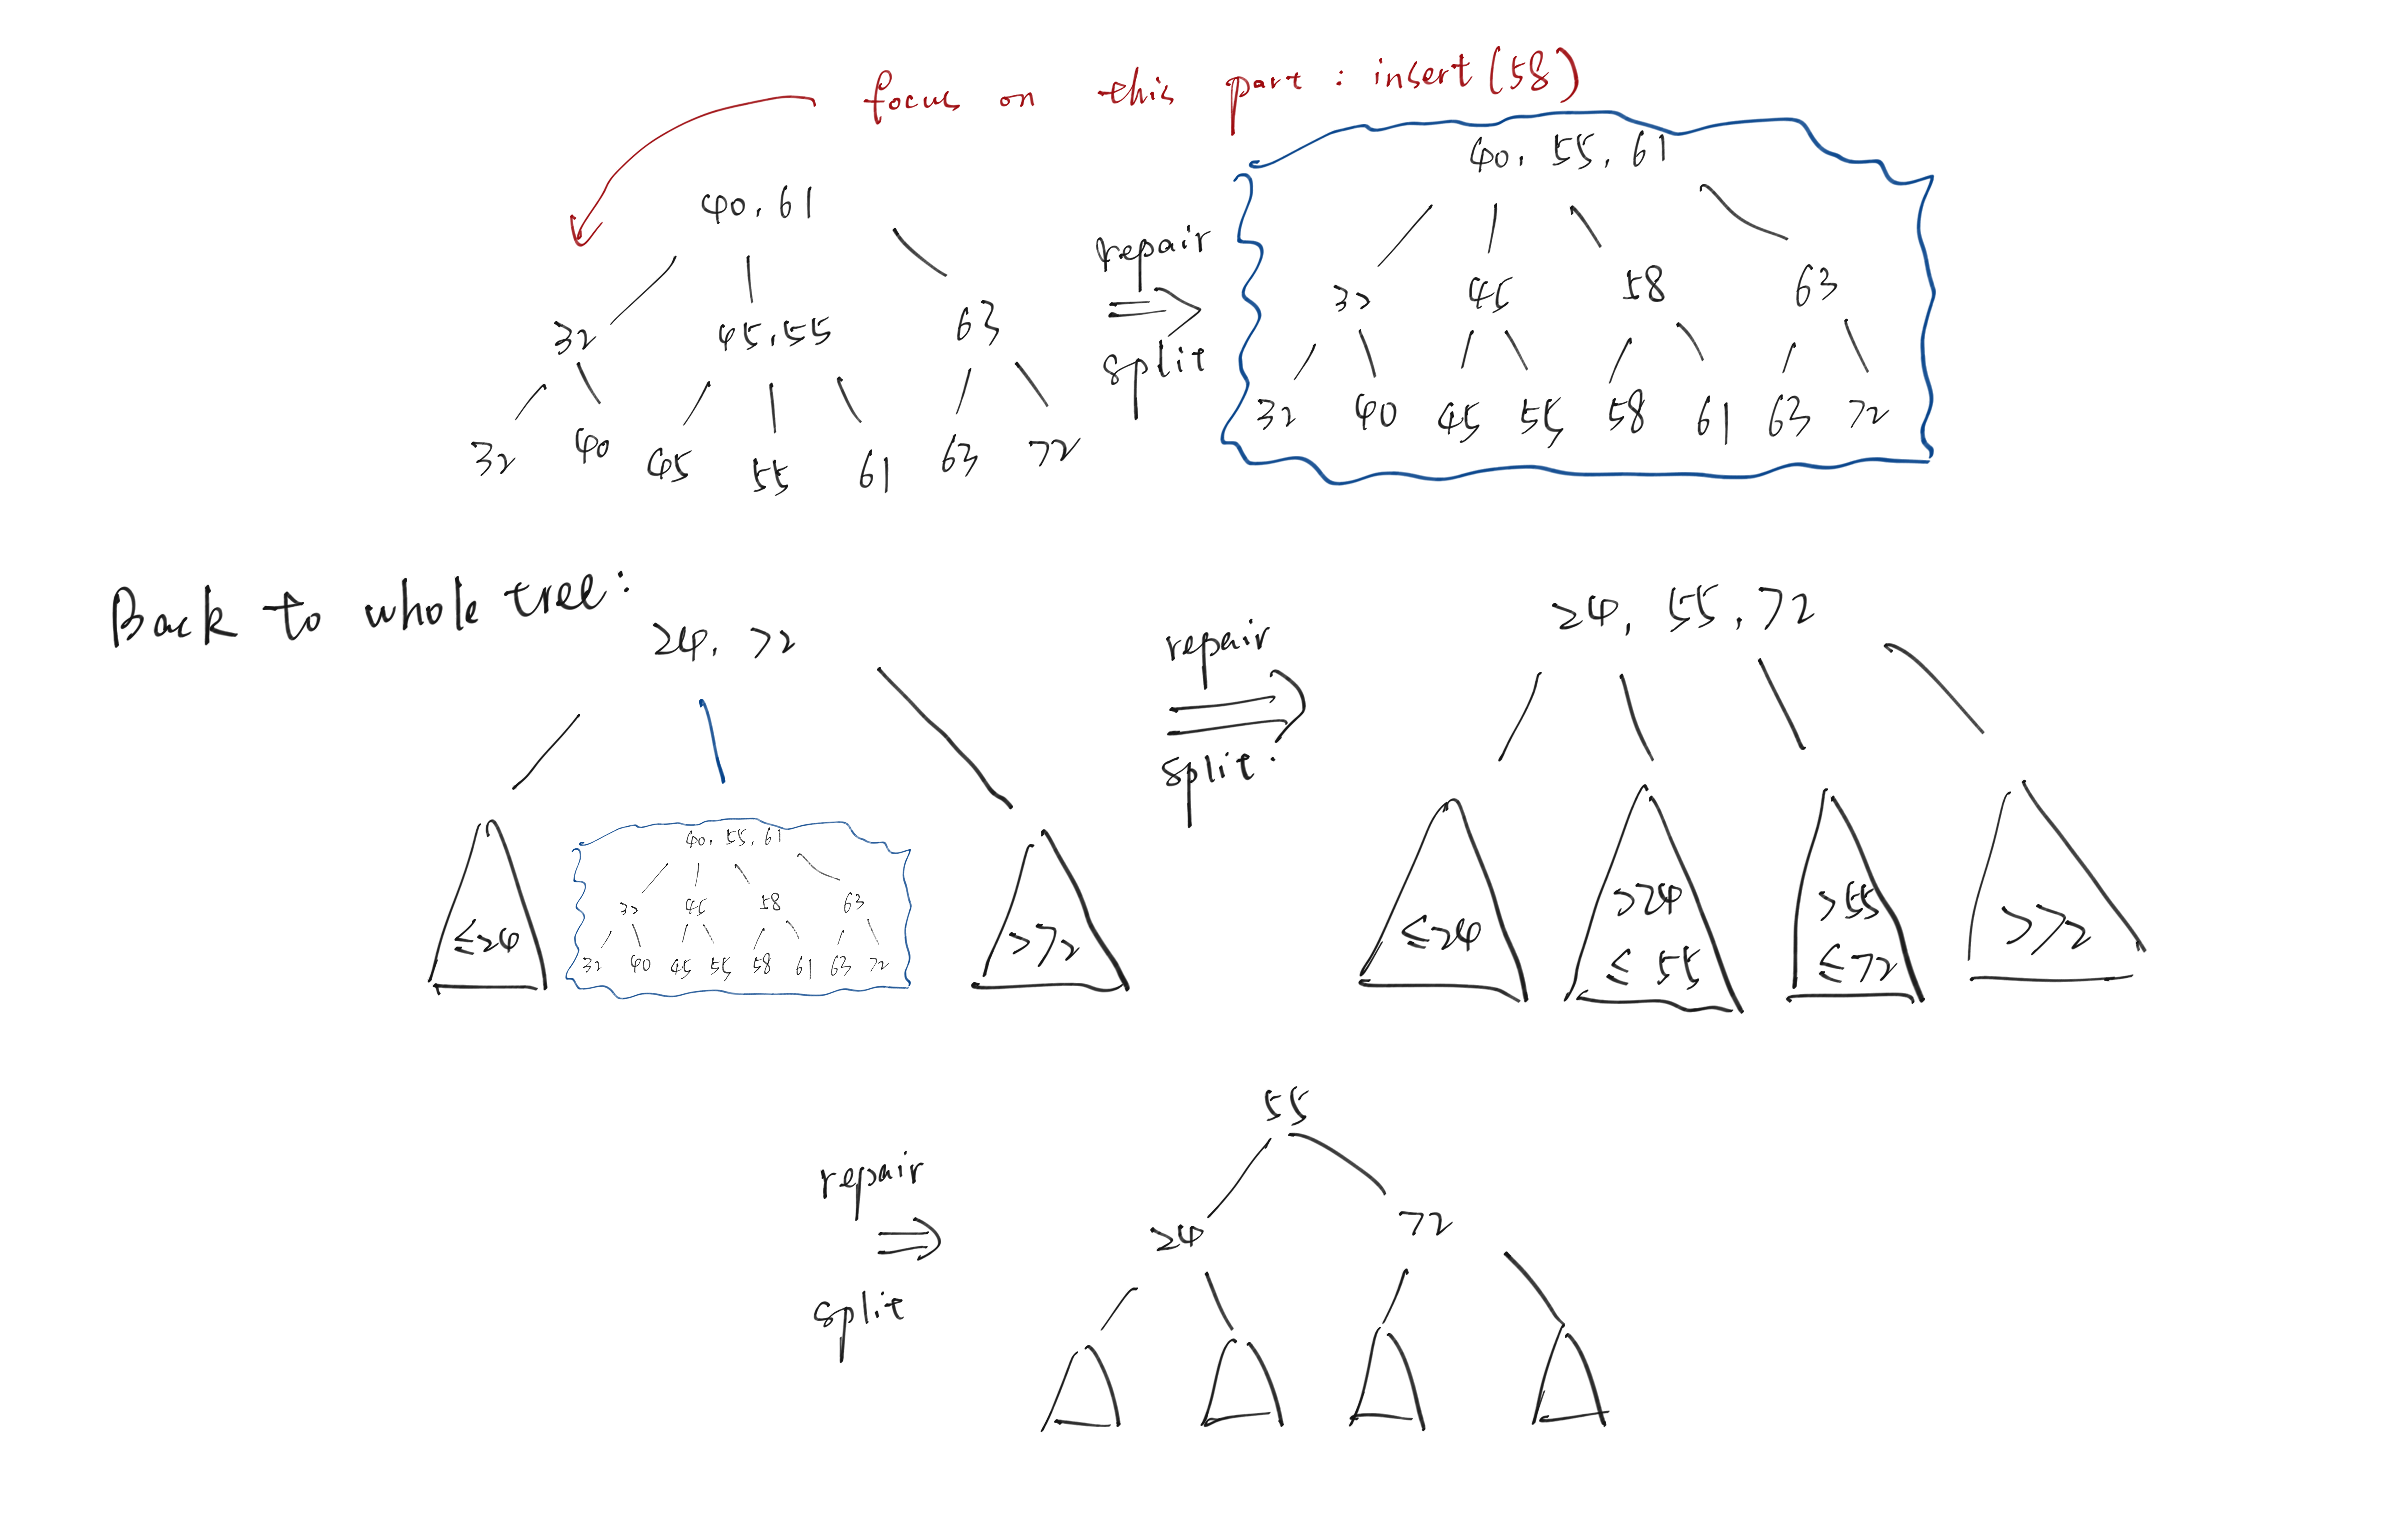 focus on this part : insert(58)
40, 61
32 45, 55 63
32 40 45 55 61 63 72
repair
split
40, 55, 61
32 45 58 63
32 40 45 55 58 61 63 72
Back to whole tree:
24, 72
≤24
40, 55, 61
32 45 58 63
32 40 45 55 58 61 63 72
>72
repair
split.
24, 55, 72
≤24
>24
≤ 55
>55
≤72
>72
repair
split
55
24 72